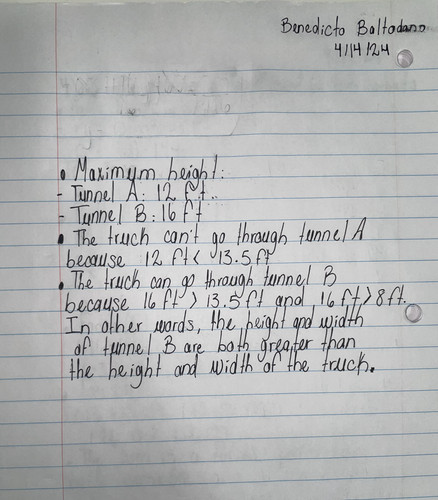 Benedicto Baltodano
4/14/24
• Maximum height:
- Tunnel A: 12 ft.
- Tunnel B: 16 ft
• The truck can't go through tunnel A
because 12 ft < 13.5 ft
• The truck can go through tunnel B
because 16 ft > 13.5 ft and 16 ft > 8 ft.
In other words, the height and width
of tunnel B are both greater than
the height and width of the truck.